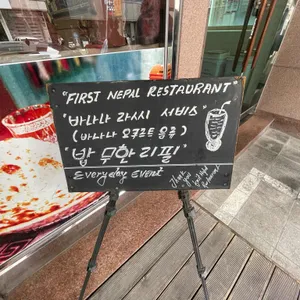 "FIRST NEPAL RESTAURANT"
"바나나 라씨 서비스"
(바나나 요구르트 음료)
"밥 무한 리필"
Everyday Event
Thank you
first nepal
Restaurant